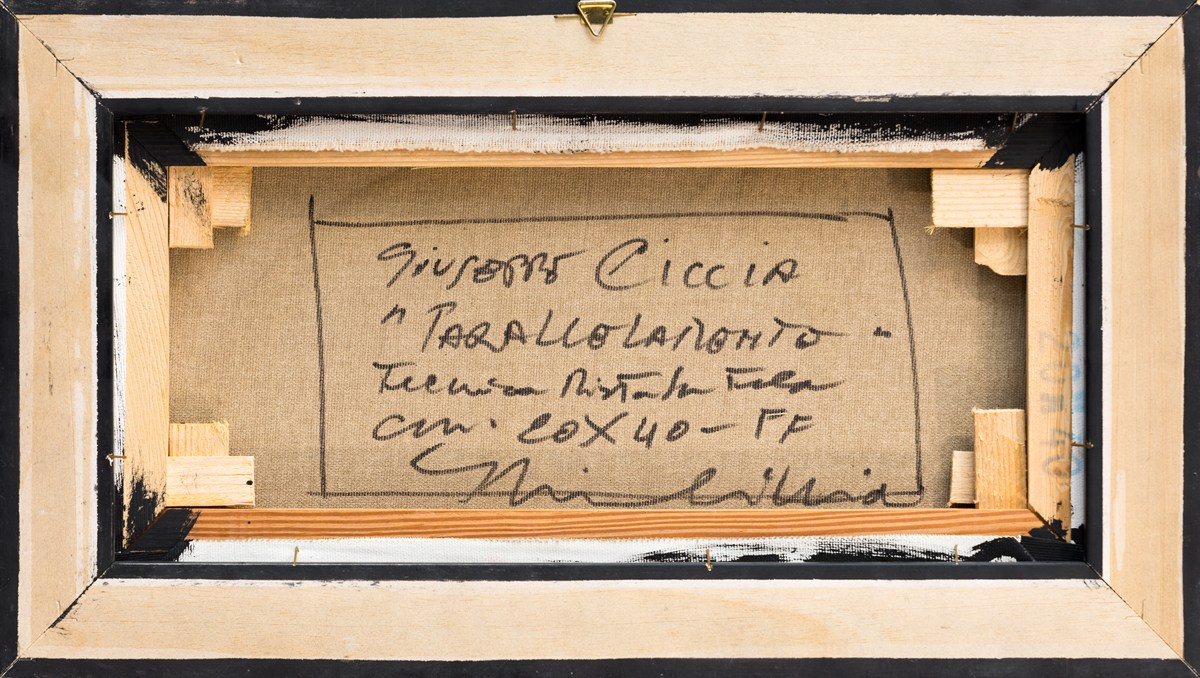 GIUSEPPE CICCIA
"PARALLELAMENTO"
Tecnica Mista su Tela
cm. 20X40-FF